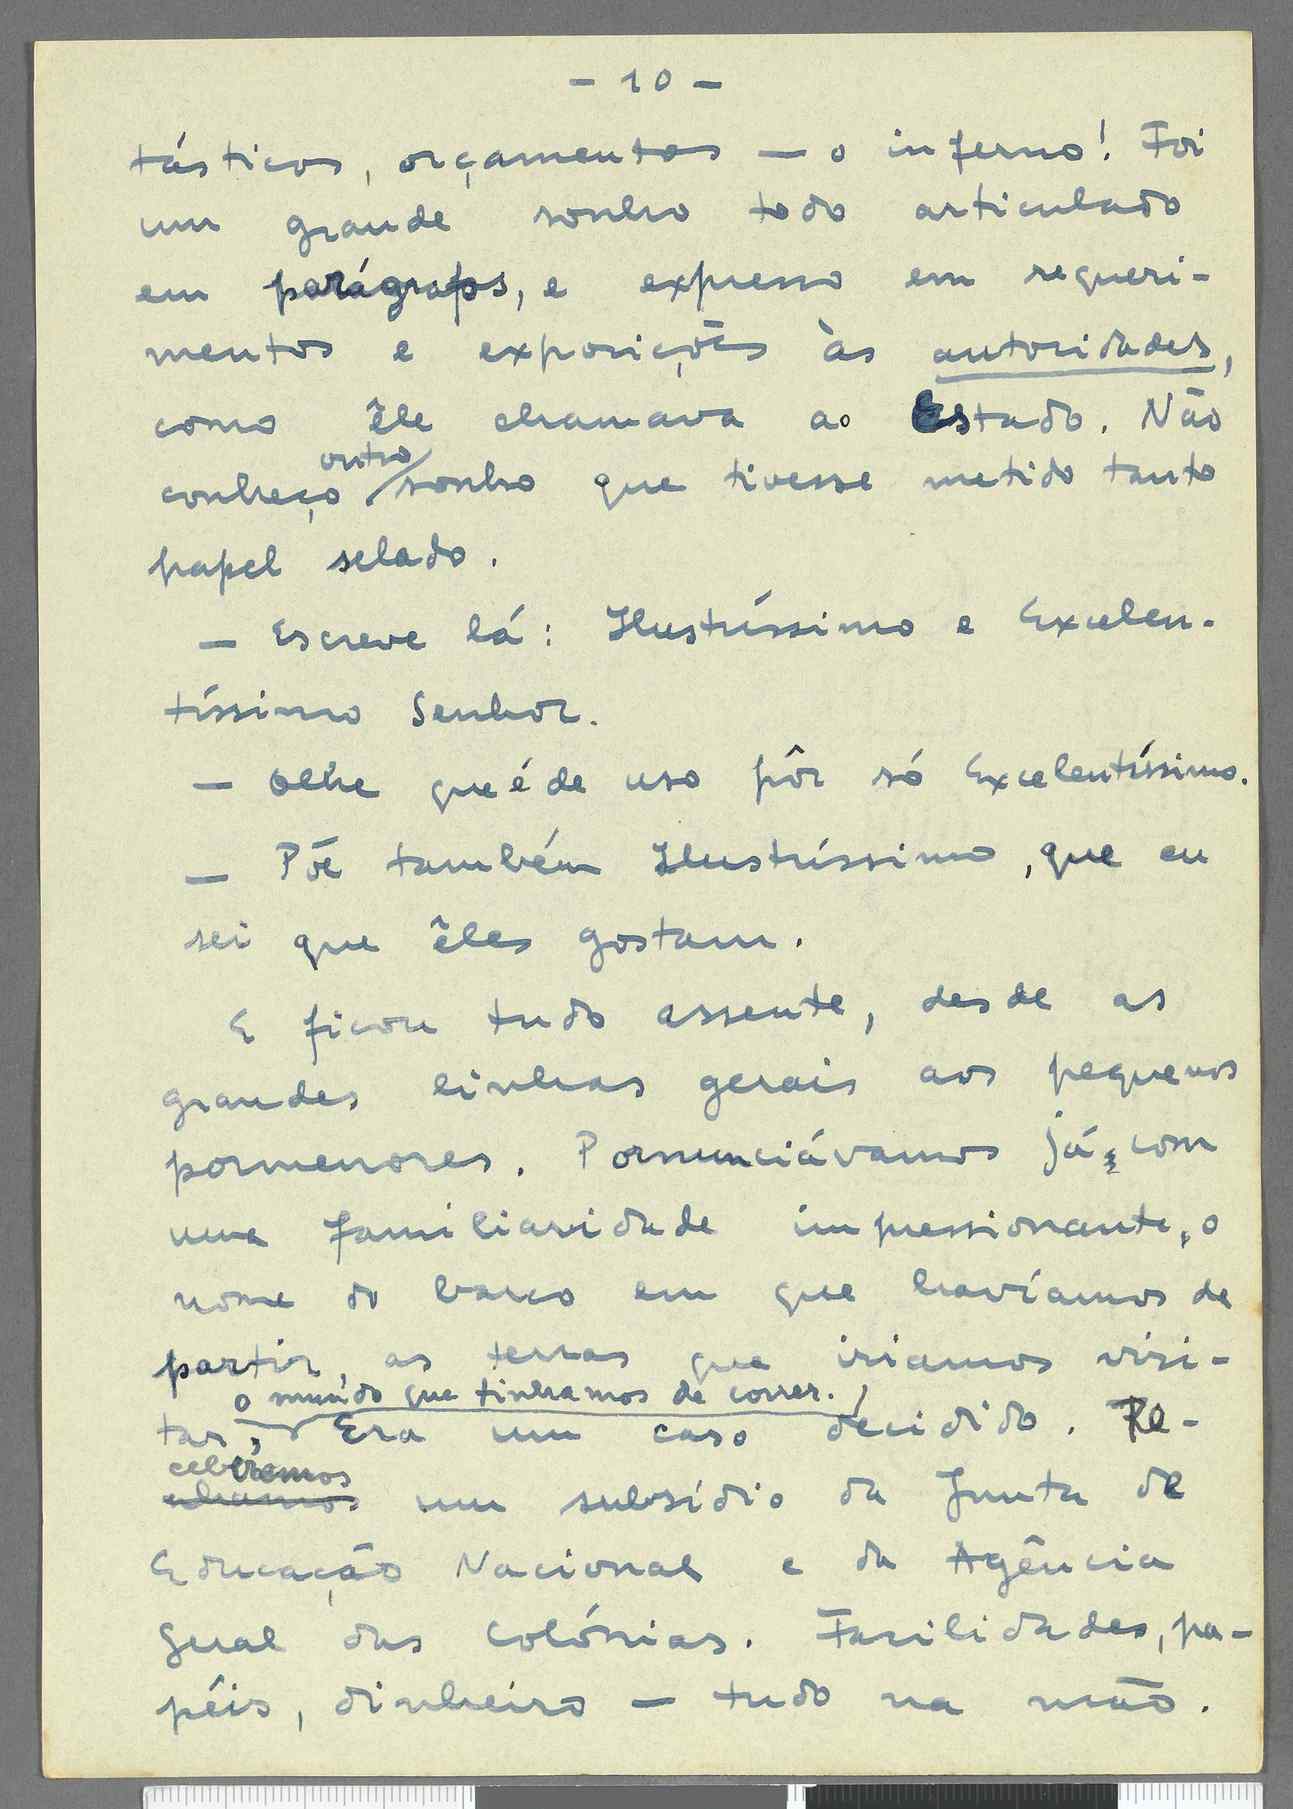 - 10 -
tásticos, orçamentos — o inferno! Foi
um grande sonho todo articulado
em parágrafos, e expresso em requeri-
mentos e exposições às autoridades,
como êle chamava ao Estado. Não
outro
conheço sonho que tivesse metido tanto
papel selado.
— Escreve lá: Ilustríssimo e Excelen-
tíssimo Senhor.
— Olhe que é de uso pôr só Excelentíssimo.
— Põe também Ilustríssimo, que eu
sei que êles gostam.
E ficou tudo assente, desde as
grandes linhas gerais aos pequenos
pormenores. Pornunciávamos já, com
uma familiaridade impressionante, o
nome do barco em que havíamos de
partir, as terras que iriamos visi-
o mundo que tinhamos de correr.
tar, Era um caso decidido. Re-
ceberíamos
um subsídio da Junta de
Educação Nacional e da Agência
geral das colónias. Facilidades, pa-
péis, dinheiro — tudo na mão.